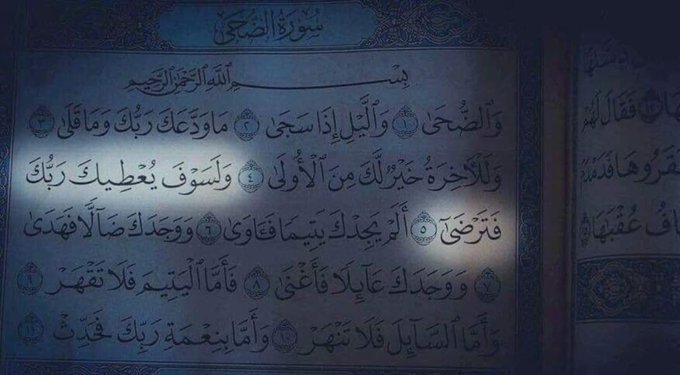 سُورَةُ الضُّحَىٰ
بِسْمِ ٱللَّهِ ٱلرَّحْمَٰنِ ٱلرَّحِيمِ
وَٱلضُّحَىٰ ١ وَٱلَّيْلِ إِذَا سَجَىٰ ٢ مَا وَدَّعَكَ رَبُّكَ وَمَا قَلَىٰ ٣
وَلَلْءَاخِرَةُ خَيْرٌ لَّكَ مِنَ ٱلْأُولَىٰ ٤ وَلَسَوْفَ يُعْطِيكَ رَبُّكَ
فَتَرْضَىٰٓ ٥ أَلَمْ يَجِدْكَ يَتِيمًا فَـَٔاوَىٰ ٦ وَوَجَدَكَ ضَآلًّا فَهَدَىٰ
٧ وَوَجَدَكَ عَآئِلًا فَأَغْنَىٰ ٨ فَأَمَّا ٱلْيَتِيمَ فَلَا تَقْهَرْ ٩
وَأَمَّا ٱلسَّآئِلَ فَلَا تَنْهَرْ ١٠ وَأَمَّا بِنِعْمَةِ رَبِّكَ فَحَدِّثْ ١١
فَقَالَ لَهُمْ
عُقْبَٰهَا